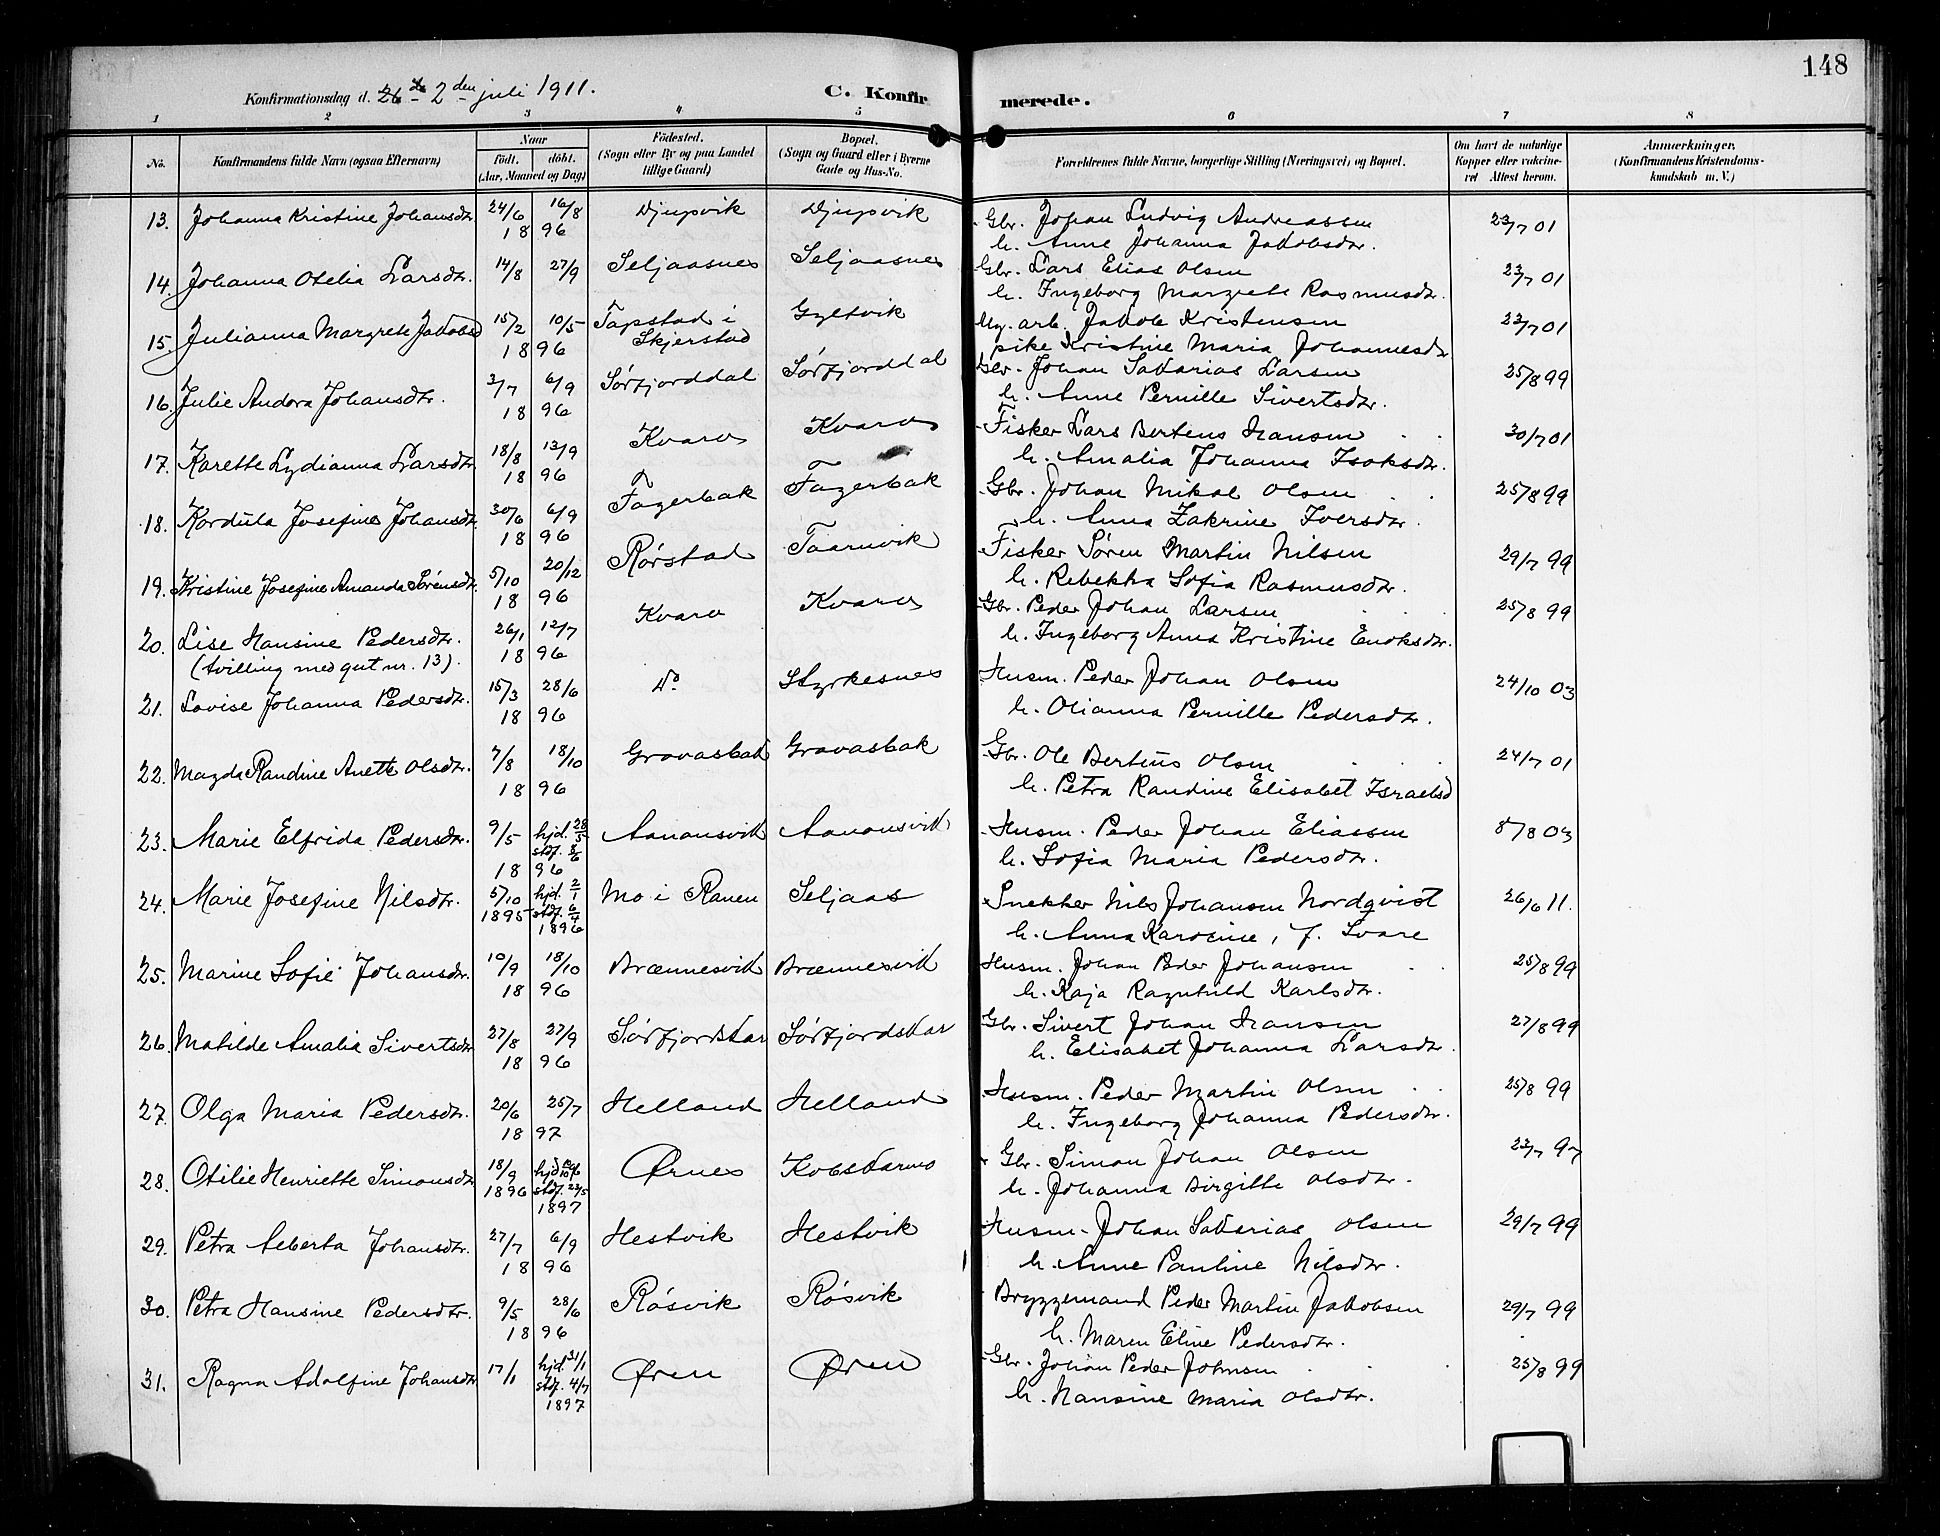 148
Konfirmationsdag d. 26de 2den juli 1911. C. Konfirmerede.
1 2 3 4 5 6 7 8
No. Konfirmandens fulde Navn (ogsaa Efternavn) Naar födt. döbt. (Aar, Maaned og Dag) Födested. (Sogn eller By og paa Landet tillige Gaard) Bopæl. (Sogn og Gaard eller i Byerne Gade og Hus-No. Forældrenes fulde Navne, borgerlige Stilling (Næringsvei) og Bopæl. Om havt de naturlige Kopper eller vakcineret Attest herom. Anmærkninger. (Konfirmandens Kristendomskundskab m. V.)
13. Johanna Kristine Johansdtr 24/6 16/8 Djupvik Djupvik Gbr. Johan Ludvig Andreassen 23/7 01
18 96 h. Anne Johanna Jakobsdtr.
14. Johanna Otelia Larsdtr. 14/8 27/9 Seljaasnes Seljaasnes Gbr. Lars Elias Olsen 23/7 01
h. Ingeborg Margrete Rasmusdtr.
15. Julianna Margrete Jakobsd 15/2 10/5 Tapstad i Skjerstad Gyltvik Ug. arb. Jakob Kristensen 23/7 01
18 96 pike Kristine Maria Johannesdtr
16. Julie Andora Johansdtr. 3/7 6/9 Sørfjorddal Sørfjorddal Gbr. Johan Sakarias Larsen 25/8 99
18 96 h. Anne Pernille Sivertsdtr.
17. Karette Lydianna Larsdtr 18/8 13/9 Kvarv Kvarv Fisker Lars Bertens Hansen 30/7 01
18 96 h. Amalia Johanna Isaksdtr.
18. Kordula Josefine Johansdtr 30/6 6/9 Fagerbak Fagerbak Gbr. Johan Mikal Olsen 25/8 99
18 96 h. Anna Zakrine Iversdtr.
19. Kristine Josefine Amanda Sørensdtr. 5/10 20/12 Rørstad Taarnvik Fisker Søren Martin Nilsen 29/7 99
18 96 h. Rebekka Sofia Rasmusdtr.
20. Lise Hansine Pedersdtr. 26/1 12/7 Kvarv Kvarv Gbr. Peder Johan Larsen 25/8 99
(tvilling med gut nr. 13). 18 96 h. Ingeborg Anna Kristine Enoksdtr.
21. Lovise Johanna Pedersdtr. 15/3 28/6 Do Styrkesnes Husm. Peder Johan Olsen 24/10 03
18 96 h. Olianna Pernille Pedersdtr.
22. Magda Randine Anette Olsdtr. 7/8 18/10 Gravasbak Gravasbak Gbr. Ole Bertius Olsen 24/7 01
18 96 h. Petra Randine Elisabet Israelsd
23. Marie Elfrida Pedersdtr. 9/5 hjd. 28/5 Aanansvik Aanansvik Husm. Peder Johan Eliassen 8/8 03
stdf. 8/6
18 96 h. Sofia Maria Pedersdtr.
24. Marie Josefine Nilsdtr. 5/10 hjd. 2/1 Mo i Ranen Seljaas Snekker Nils Johansen Nordqvist 26/6 11.
1895 stdf. 6/4 1896 h. Anna Karoline, f. Svare
25. Marine Sofie Johansdtr. 10/9 18/10 Brænnesvik Brænnesvik Husm. Johan Peder Johansen 25/8 99
18 96 h. Kaja Ragnhild Karlsdtr.
26. Matilde Amalia Sivertsdtr 27/8 27/9 Sørfjordskar Sørfjordskar Gbr. Sivert Johan Hansen 27/8 99
18 96 h. Elisabet Johanna Larsdtr.
27. Olga Maria Pedersdtr. 20/6 25/7 Helland Helland Husm. Peder Martin Olsen 25/8 99
18 97 h. Ingeborg Johanna Pedersdtr.
28. Otilie Henriette Simonsdtr 18/9 hjd. Ørnes Kobskarmo Gbr. Simon Johan Olsen 23/7 97
1896 stdf. 23/5 1897 h. Johanna Birgitte Olsdtr.
29. Petra Alberta Johansdtr. 27/7 6/9 Hestvik Hestvik Husm. Johan Sakarias Olsen 29/7 99
18 96 h. Anne Pauline Nilsdtr.
30. Petra Hansine Pedersdtr. 9/5 28/6 Røsvik Røsvik Bryggemand Peder Martin Jakobsen 29/7 99
18 96 h. Maren Eline Pedersdtr.
31. Ragna Adolfine Johansdtr 17/1 hjd. 31/1 Øren Øren Gbr. Johan Peder Johnsen 25/8 99
stdf. 4/7 1897 h. Hansine Maria Olsdtr.